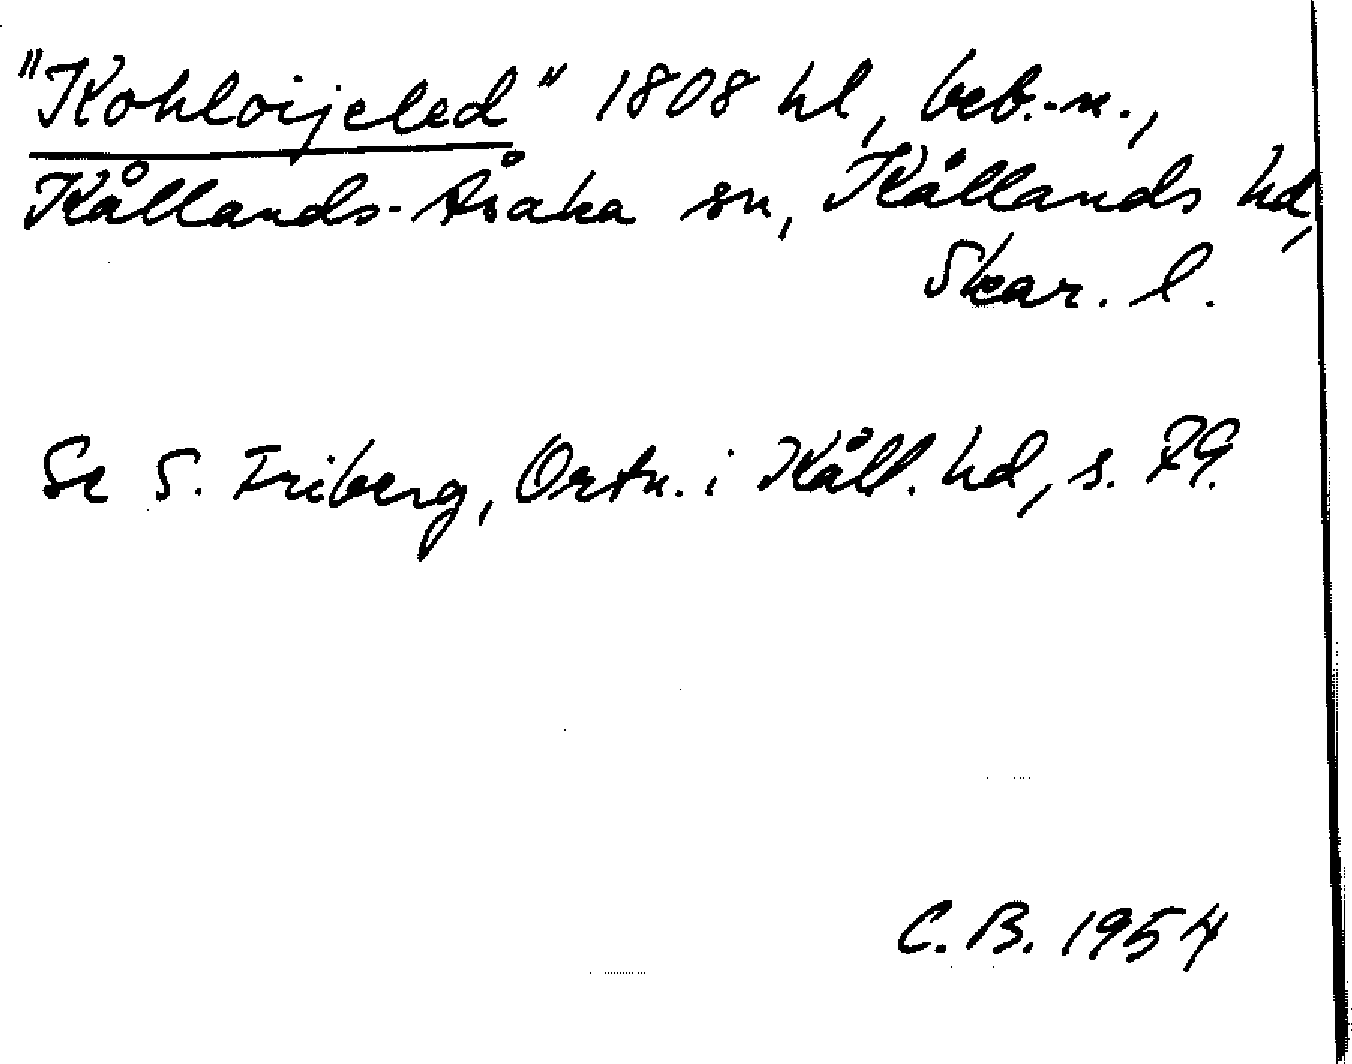 "Kohloijeled" 1808 hl, beb.-n.,
Kållands-Åsaka sn, Kållands hd,
Skar. l.
Se S. Friberg, Ortn. i Kåll. hd, s. 79.
C. B. 1954